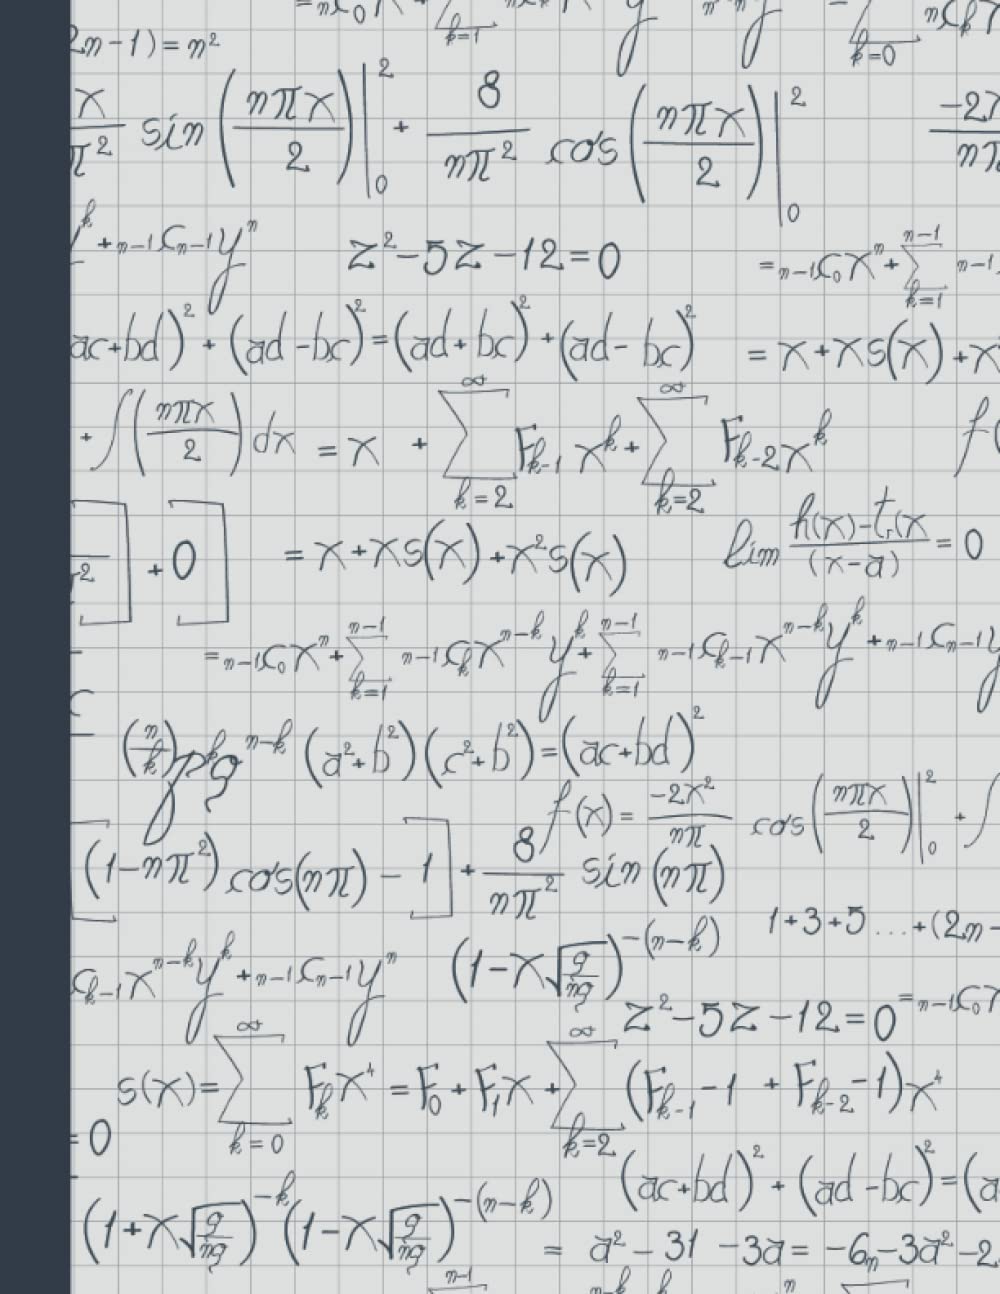 2n-1) = n²
k=1
k=0
x/π² sin (nπx/2) |₀² + 8/nπ² cos (nπx/2) |₀² -2x/nπ
yᵏ + n-1Cn-1 yⁿ
z² - 5z - 12 = 0
= n-1C₀xⁿ + ∑ k=1 n-1 n-1
ac+bd)² + (ad-bc)² = (ad+bc)² + (ad-bc)²
= x + xs(x) + x
+ ∫(nπx/2) dx = x + ∑ k=2 ∞ Fk-1 xᵏ + ∑ k=2 ∞ Fk-2 xᵏ f(
²] + 0]
= x + xs(x) + x²s(x)
lim h(x)-tᵣ(x / (x-a) = 0
= n-1C₀xⁿ + ∑ k=1 n-1 n-1Ckxⁿ⁻ᵏ yᵏ + ∑ k=1 n-1 n-1Ck-1 xⁿ⁻ᵏ yᵏ + n-1Cn-1 y
(n/k) pᵏ qⁿ⁻ᵏ (a²+b²)(c²+b²) = (ac+bd)²
f(x) = -2x²/nπ cos (nπx/2) |₀² + ∫
[(1-nπ²) cos(nπ) - 1] + 8/nπ² sin (nπ)
1+3+5...+(2n-
Ck-1 xⁿ⁻ᵏ yᵏ + n-1Cn-1 yⁿ (1-x√)^-(n-k)
z² - 5z - 12 = 0
= n-1C₀x
s(x) = ∑ k=0 ∞ Fk x⁴ = F₀ + F₁x + ∑ k=2 ∞ (Fk-1 -1 + Fk-2 -1) x⁴
= 0
(ac+bd)² + (ad-bc)² = (a
(1+x√)^-k (1-x√)^-(n-k)
= a² - 31 - 3a = -6n - 3a² - 2
n-1
n-k k n